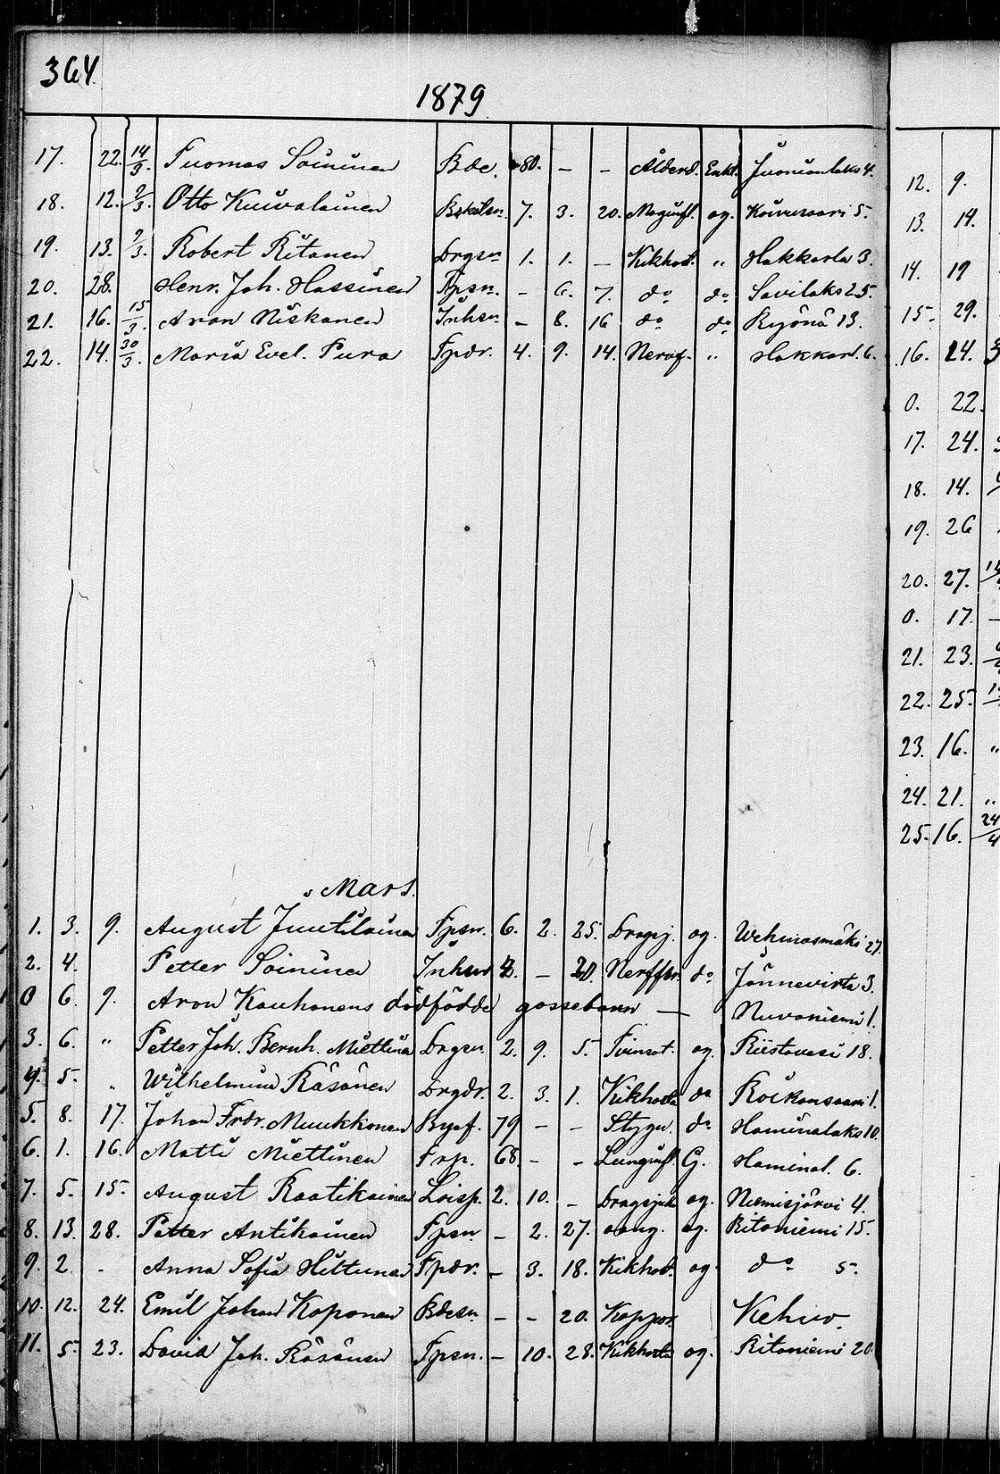 364.
1879
17. 22. 14/3. Tuomas Soininen Bde. 80. – – Ålderd. Enkl. Juonionlaks 4.
18. 12. 2/3. Otto Kuivalainen 7. 3. 20. Maginfl. og. Koivusaari 5.
19. 13. 2/3. Robert Ritonen Drgsn 1. 1. – Kikhost. " Hakkarla 3.
20. 28. Henr. Joh. Hassinen Fpsn. – 6. 7. do do Savilaks 25.
21. 16. 15/3. Aron Niskanen Inhsn – 8. 16 do do Ryönä 13.
22. 14. 30/3. Maria Evel. Pura Fpdr. 4. 9. 14. Nervf. " Hakkarl. 6.
Mars.
1. 3. 9. August Juutilainen Fpsn. 6. 2. 25. Dragsj. og. Wehmasmäki 27.
2. 4. Petter Soininen – 20. Nerffbr. do Jönnevirta 3.
0 6. 9. Aron Kauhanens dödfödde gossebarn — Nuvaniemi 1.
3. 6. " Petter Joh. Bernh. Miettinen Drgsn 2. 9. 5. Tvinsot. og. Riistavesi 18.
4. 5. Wilhelmina Räsänen Drgdr. 2. 3. 1. Kikhosta do Roikansaari 1.
5. 8. 17. Johan Fredr. Muukkonen 79 – – Stygn. do Haminalaks 10.
6. 1. 16. Matti Miettinen 68. – – Lunginfl. G. Haminal. 6.
7. 5. 15. August Raatikainen Loisp. 2. 10. – Dragsjuk og. Niemisjärvi 4.
8. 13. 28. Petter Antikainen Fpsn – 2. 27. oang. og. Ritoniemi 15.
9. 2. – Anna Sofia Hiltunen Fpdr. – 3. 18. Kikhost. og do 5.
10. 12. 24. Emil Johan Koponen Bdesn. – – 20. Koppor. Kehvo.
11. 5. 23. David Joh. Räsänen Fpsn. – 10. 28. Kikhosta og. Ritoniemi 20.
12. 9.
13. 14.
14. 19
15. 29.
16. 24.
0. 22.
17. 24.
18. 14.
19. 26
20. 27.
0. 17. –
21. 23.
22. 25.
23. 16. "
24. 21. "
25. 16. 24/4